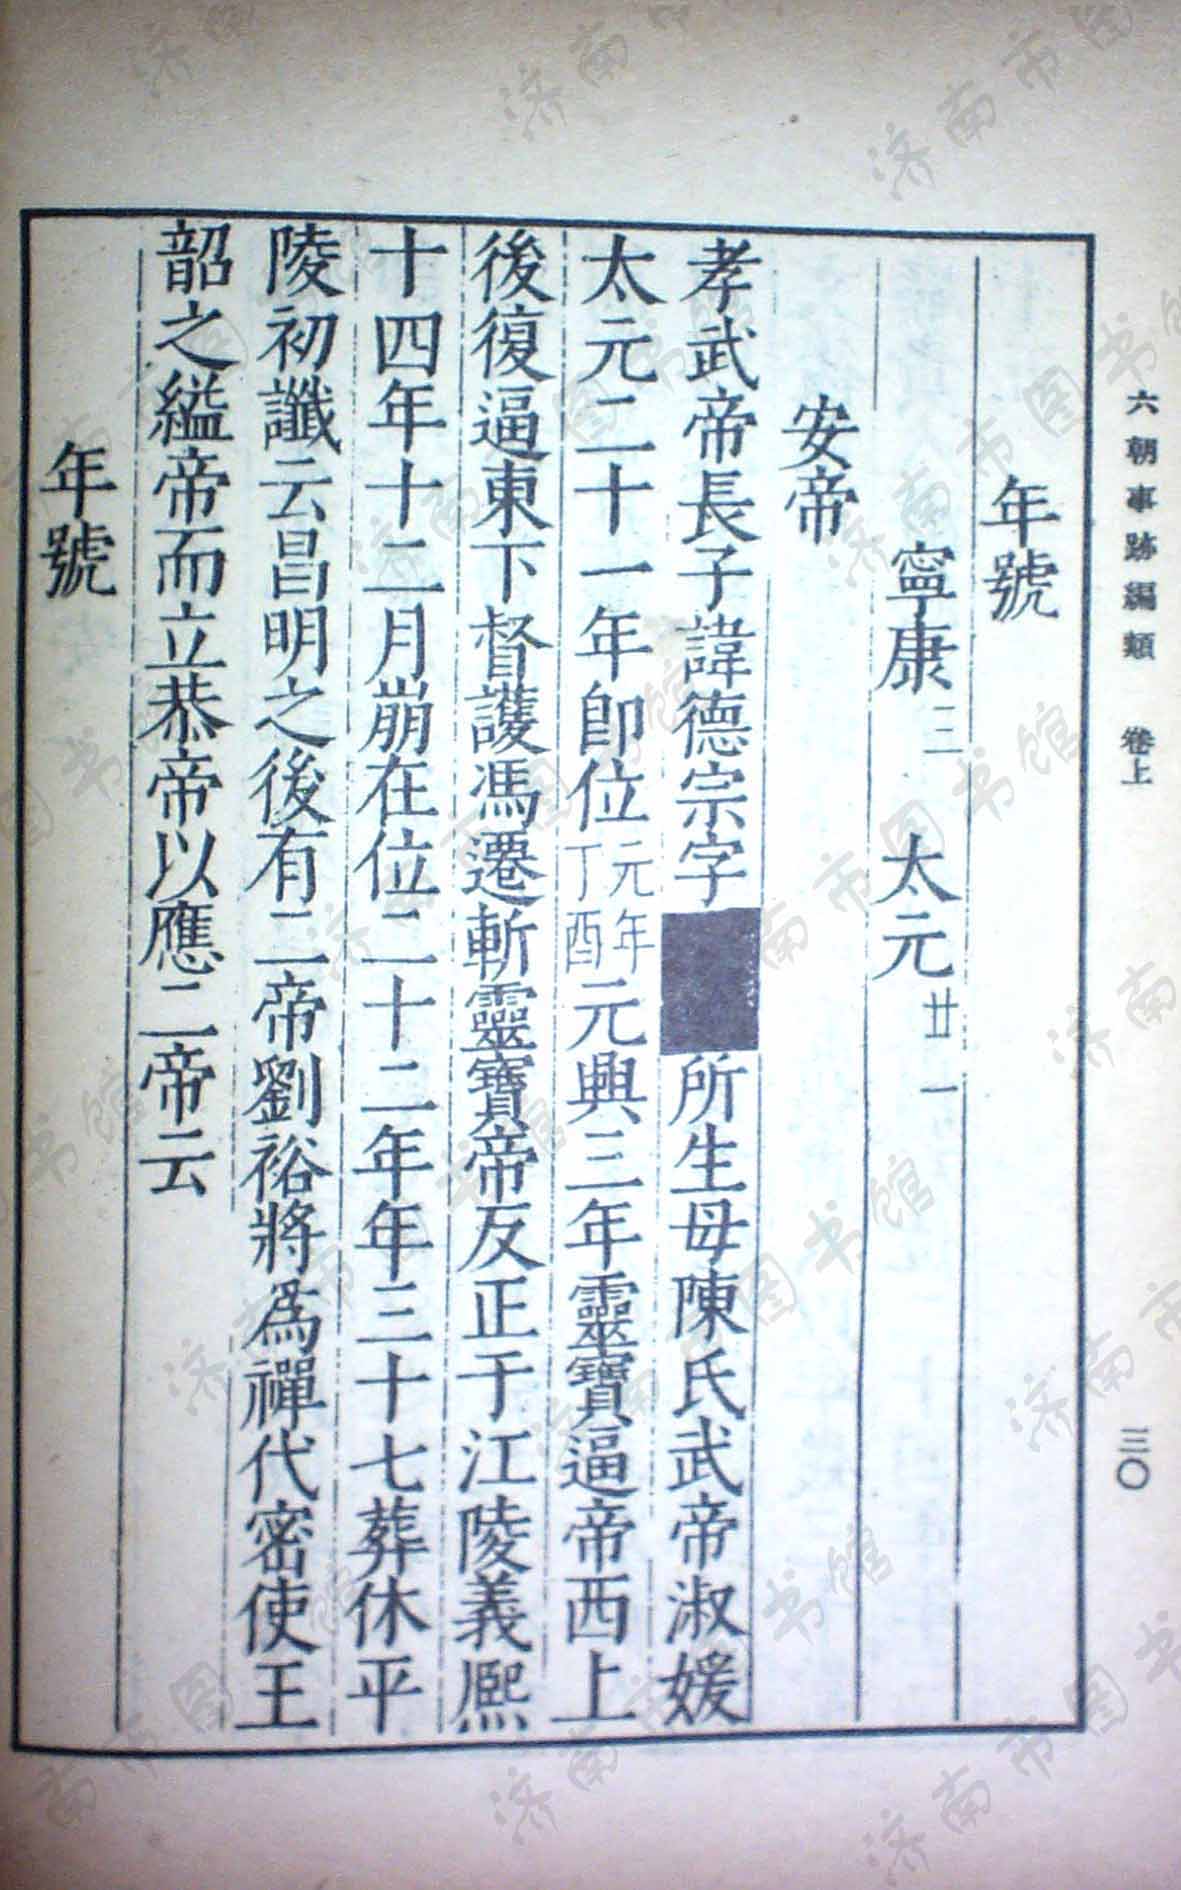 六朝事跡編類　卷上
三〇
年號
寧康三　太元廿一
安帝
孝武帝長子諱德宗字■所生母陳氏武帝淑媛
太元二十一年卽位元年丁酉元興三年靈寶逼帝西上
後復逼東下督護馮遷斬靈寶帝反正于江陵義熙
十四年十二月崩在位二十二年年三十七葬休平
陵初讖云昌明之後有二帝劉裕將爲禪代密使王
韶之縊帝而立恭帝以應二帝云
年號
济南市图书馆